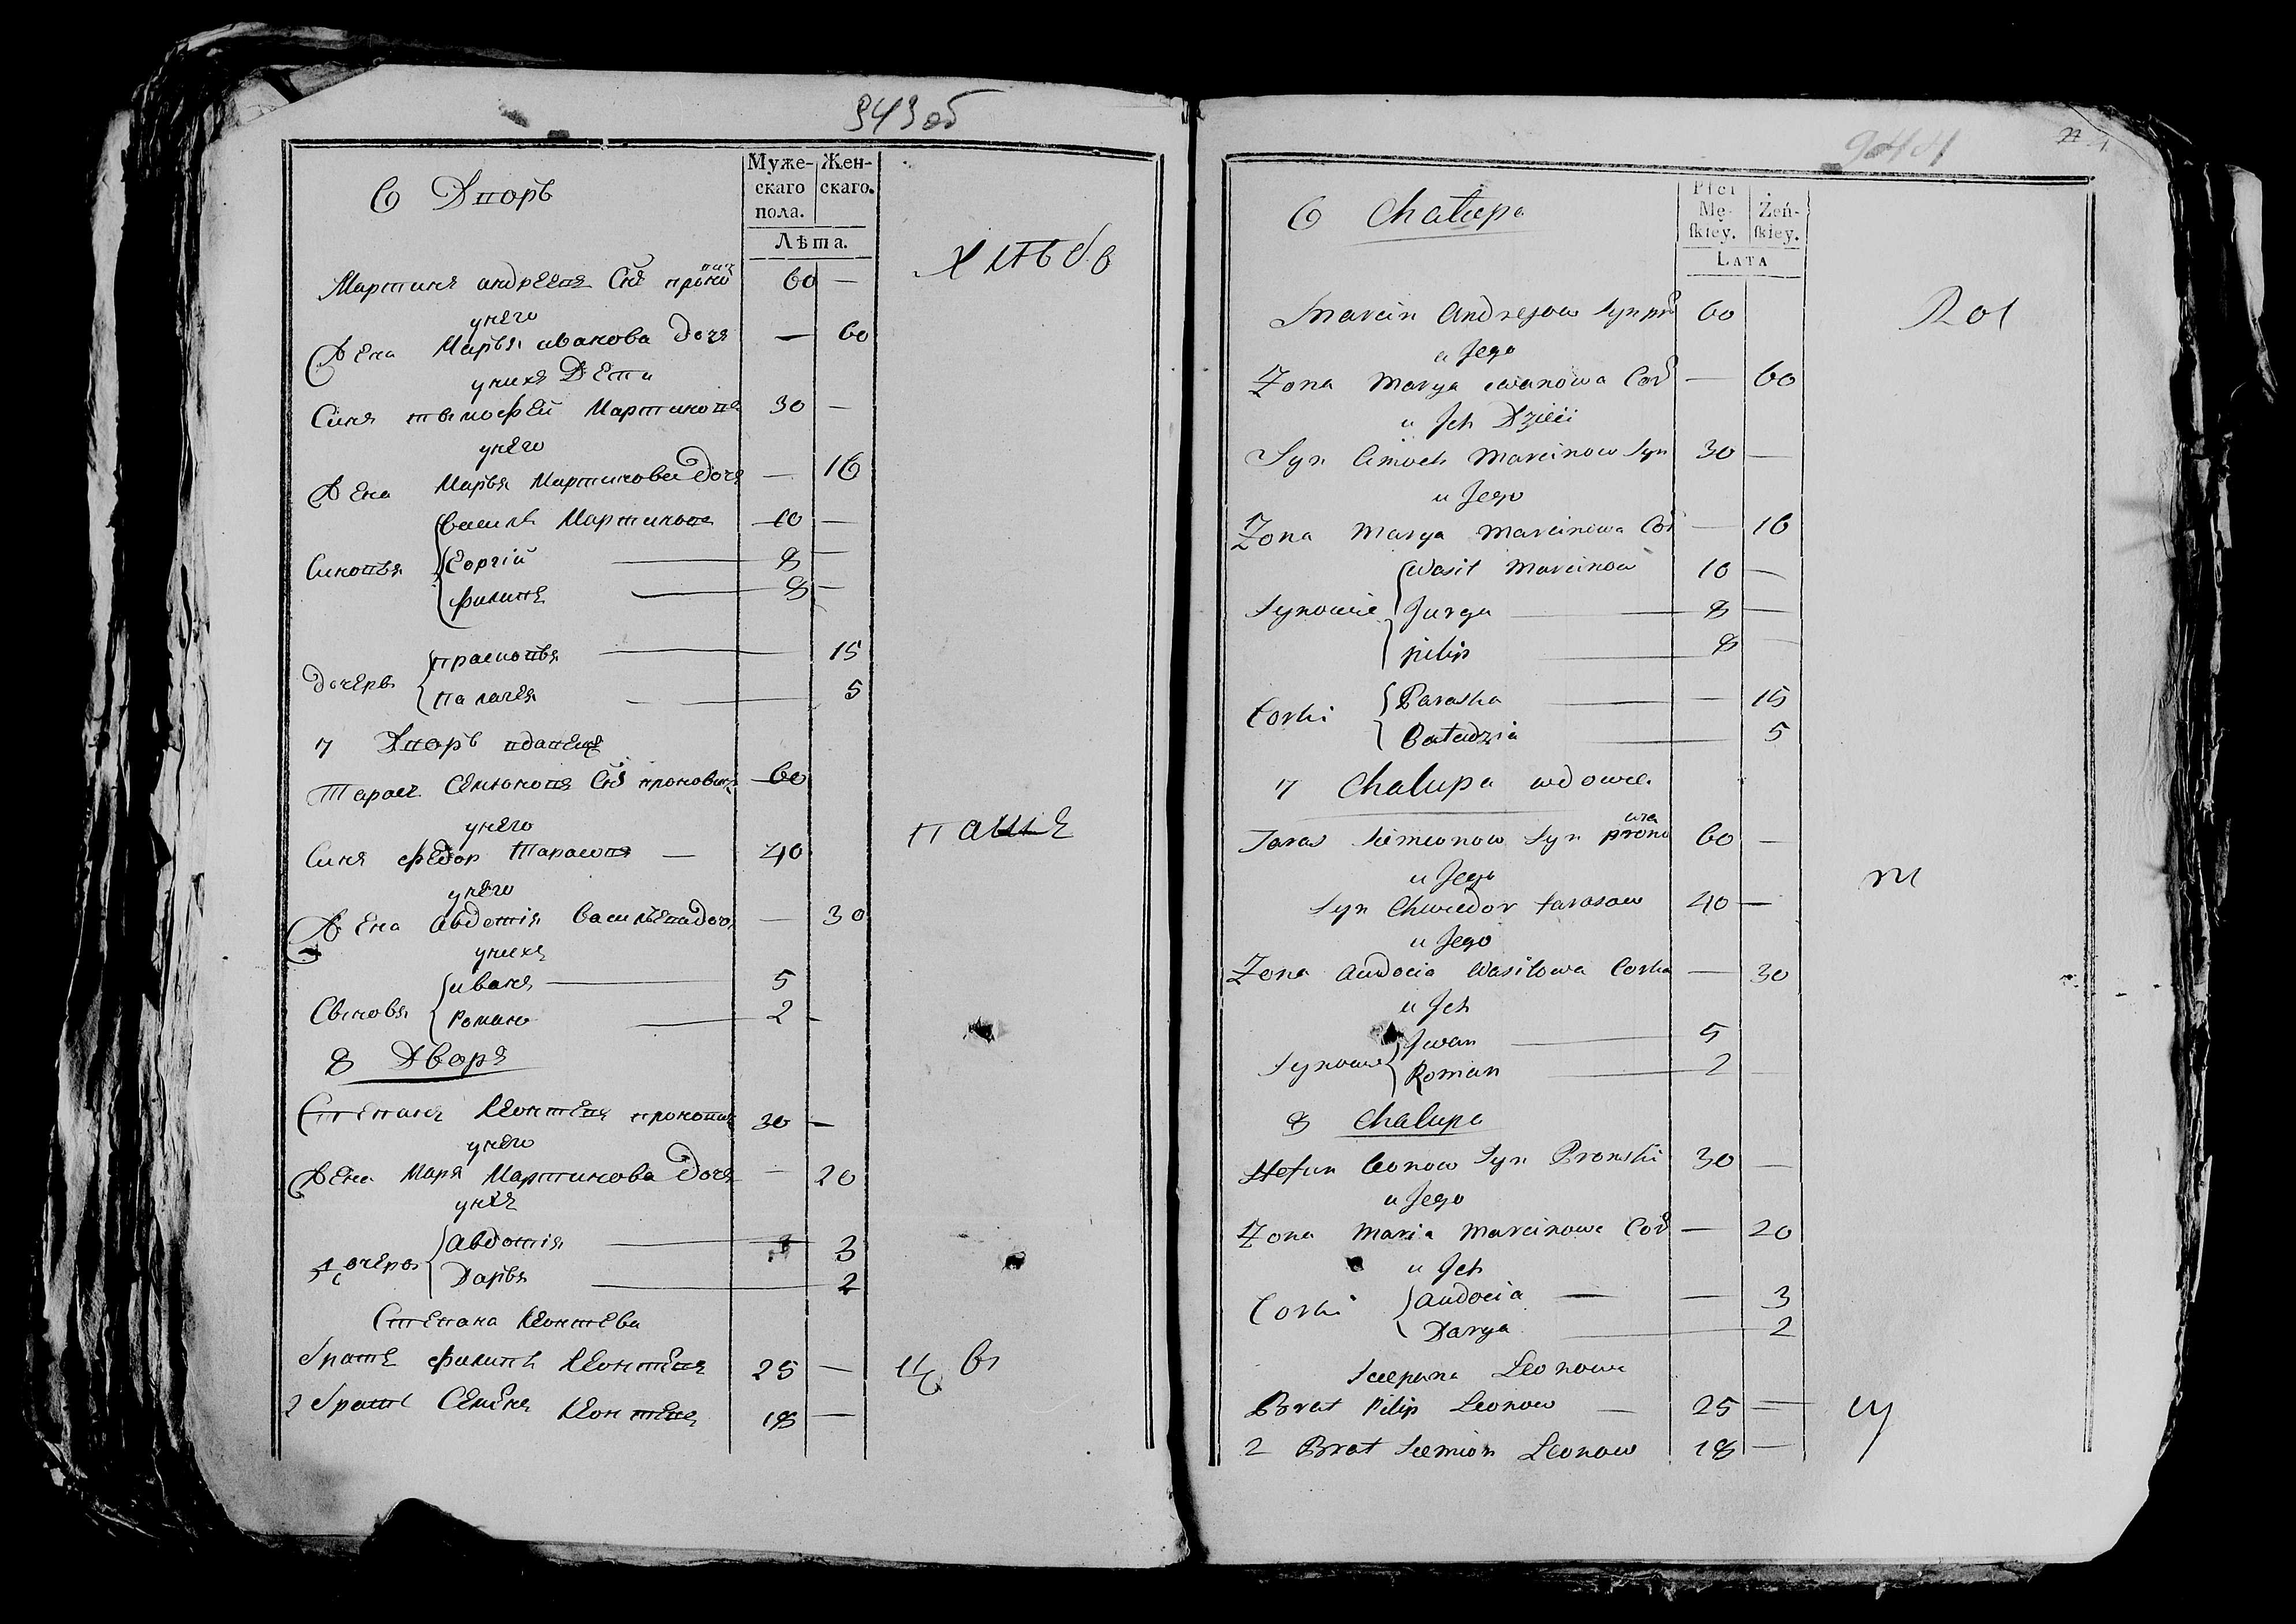 343 об
6 Дворъ
Муже-скаго пола.
Жен-скаго.
Лѣта.
Мартинъ андреевъ Снъ проно вич 60 —
у него
Жена Марья иванова Дочъ — 60
у нихъ Дети
Синъ тимофей Мартиновъ 30 —
у него
Жена Марья Мартинова Дочъ — 16
василь Мартиновъ 10 —
Синовья Еоргій 8 —
филипъ 8 —
прасковья 15
дочеръ палагея — 5
7 Дворъ вдовецъ
Тарас Семионовъ Снъ пронович 60
у него
Синъ федор Тарасовъ — 40
у него
Жена Авдотія Васильева доч — 30
у нихъ
иванъ 5
Сыновья Романъ 2 —
8 Дворъ
Степанъ Леонтевъ 30 —
у него
Жена Маря Мартинова Дочъ — 20
у нхъ
Авдотія 3
Дочеръ Дарья 2
Степана Леонтева
братъ филипъ Леонтевъ 25 —
2 братъ Семенъ Леонтевъ 18 —
944
6 Chalupa
Płci Mę-skiey.
Żeń-skiey.
LATA
Marcin Andrejow Syn 60
u Jego
Zona Marya iwanowa Cor — 60
u Jch Dzieci
Syn Cimoch Marcinow Syn 30 —
u Jego
Zona Marya Marcinowa Cor — 16
Wasil Marcinow 10 —
Synowie Jurga 8 —
pilip 8 —
Paraska — 15
Corki 5
7 Chalupa wdowca
Taras Siemionow Syn prono wicz 60 —
u Jego
Syn Chwiedor tarasow 40 —
u Jego
Zona Audocia Wasilowa Corka — 30
u Jch
Jwan 5
Synowie Roman 2 —
8 Chalupa
Stefan Leonow Syn Pronski 30 —
u Jego
Zona Maria Marcinowa Cor — 20
u Jch
Audocia — — 3
Corki Darya 2
Sciepana Leonowa
Brat Pilip Leonow — 25 —
2 Brat Siemion Leonow 18 —